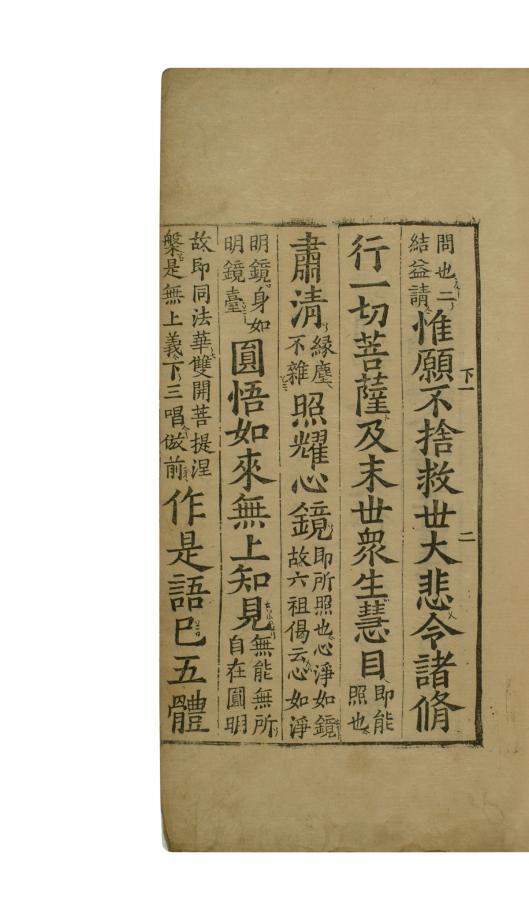 問也二結益請惟願不捨救世大悲令諸脩
下一
二
行一切菩薩及末世衆生慧目即能照也
肅清緣塵不雜照耀心鏡即所照也心淨如鏡故六祖偈云心如淨
明鏡身如明鏡臺圓悟如來無上知見無能無所自在圓明
故即同法華雙開菩提涅槃是無上義下三唱倣前作是語巳五體